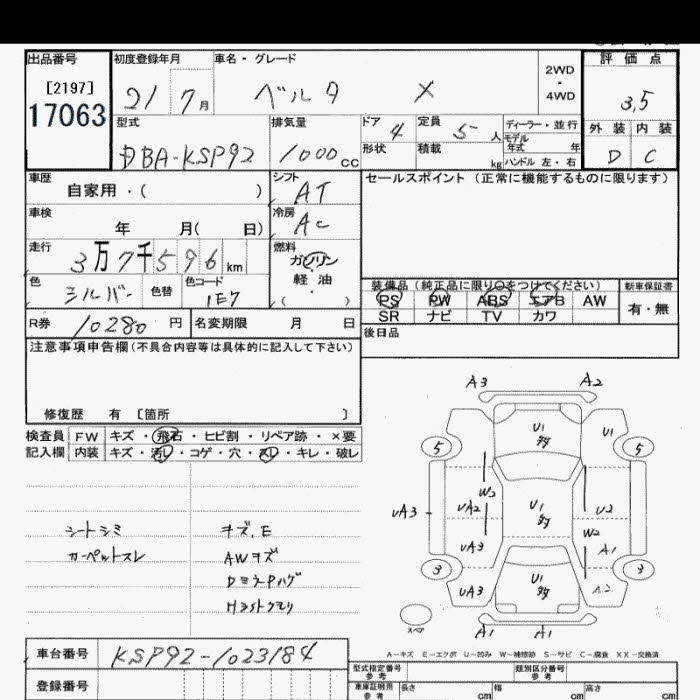 出品番号 初度登録年月 車名・グレード 評価点
[2197] 2WD・4WD
17063 21 7月 ベルタ X 3,5
型式 排気量 ドア 4 定員 5人 ディーラー・並行 外装 内装
DBA-KSP92 1000cc 形状 積載 kg モデル年式 年 ハンドル 左・右 D C
車歴 シフト セールスポイント (正常に機能するものに限ります)
自家用・( ) AT
車検 冷房
年 月( 日) AC
走行 燃料
3万7千596km ガソリン
色 シルバー 色替 色コード 1E7 軽油 ( )
装備品(純正品に限り○をつけてください) 新車保証書
PS PW ABS エアB AW 有・無
SR ナビ TV カワ
R券 10280円 名変期限 月 日
後日品
注意事項申告欄(不具合内容等は具体的に記入して下さい)
修復歴 有 [箇所 ]
検査員 FW キズ・飛石・ヒビ割・リペア跡・×要
記入欄 内装 キズ・汚レ・コゲ・穴・スレ・キレ・破レ
シートシミ キズ,E
カーペットスレ AWキズ
DミラーPハゲ
Hライトクモリ
A3 A2
U1 U1
5 5
W2
UA3 UA2 U1 U2
W2
UA3 A1
3 3
UA3 U1 A2
スペア A1 A1
A-キズ E-エクボ U-凹み W-補修跡 S-サビ C-腐食 XX-交換済
車台番号 KSP92-1023184
型式指定番号 参考 類別区分番号 参考
登録番号
車庫証明用 参考 長さ cm 幅 cm 高さ cm